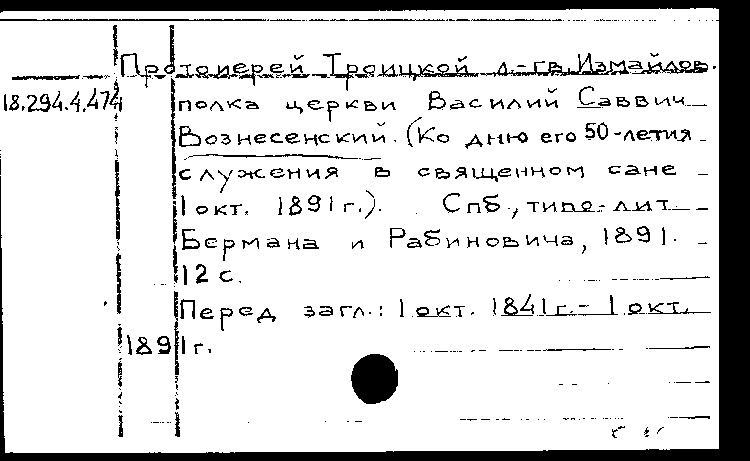 Протоиерей Троицкой л-гв. Измайлов.
18.294.4.474 полка церкви Василий Саввич
Вознесенский. (Ко дню его 50-летия
служения в священном сане
1 окт. 1891 г.). Спб., типо-лит.
Бермана и Рабиновича, 1891.
12 с.
Перед загл.: 1 окт. 1841 г. - 1 окт.
1891 г.